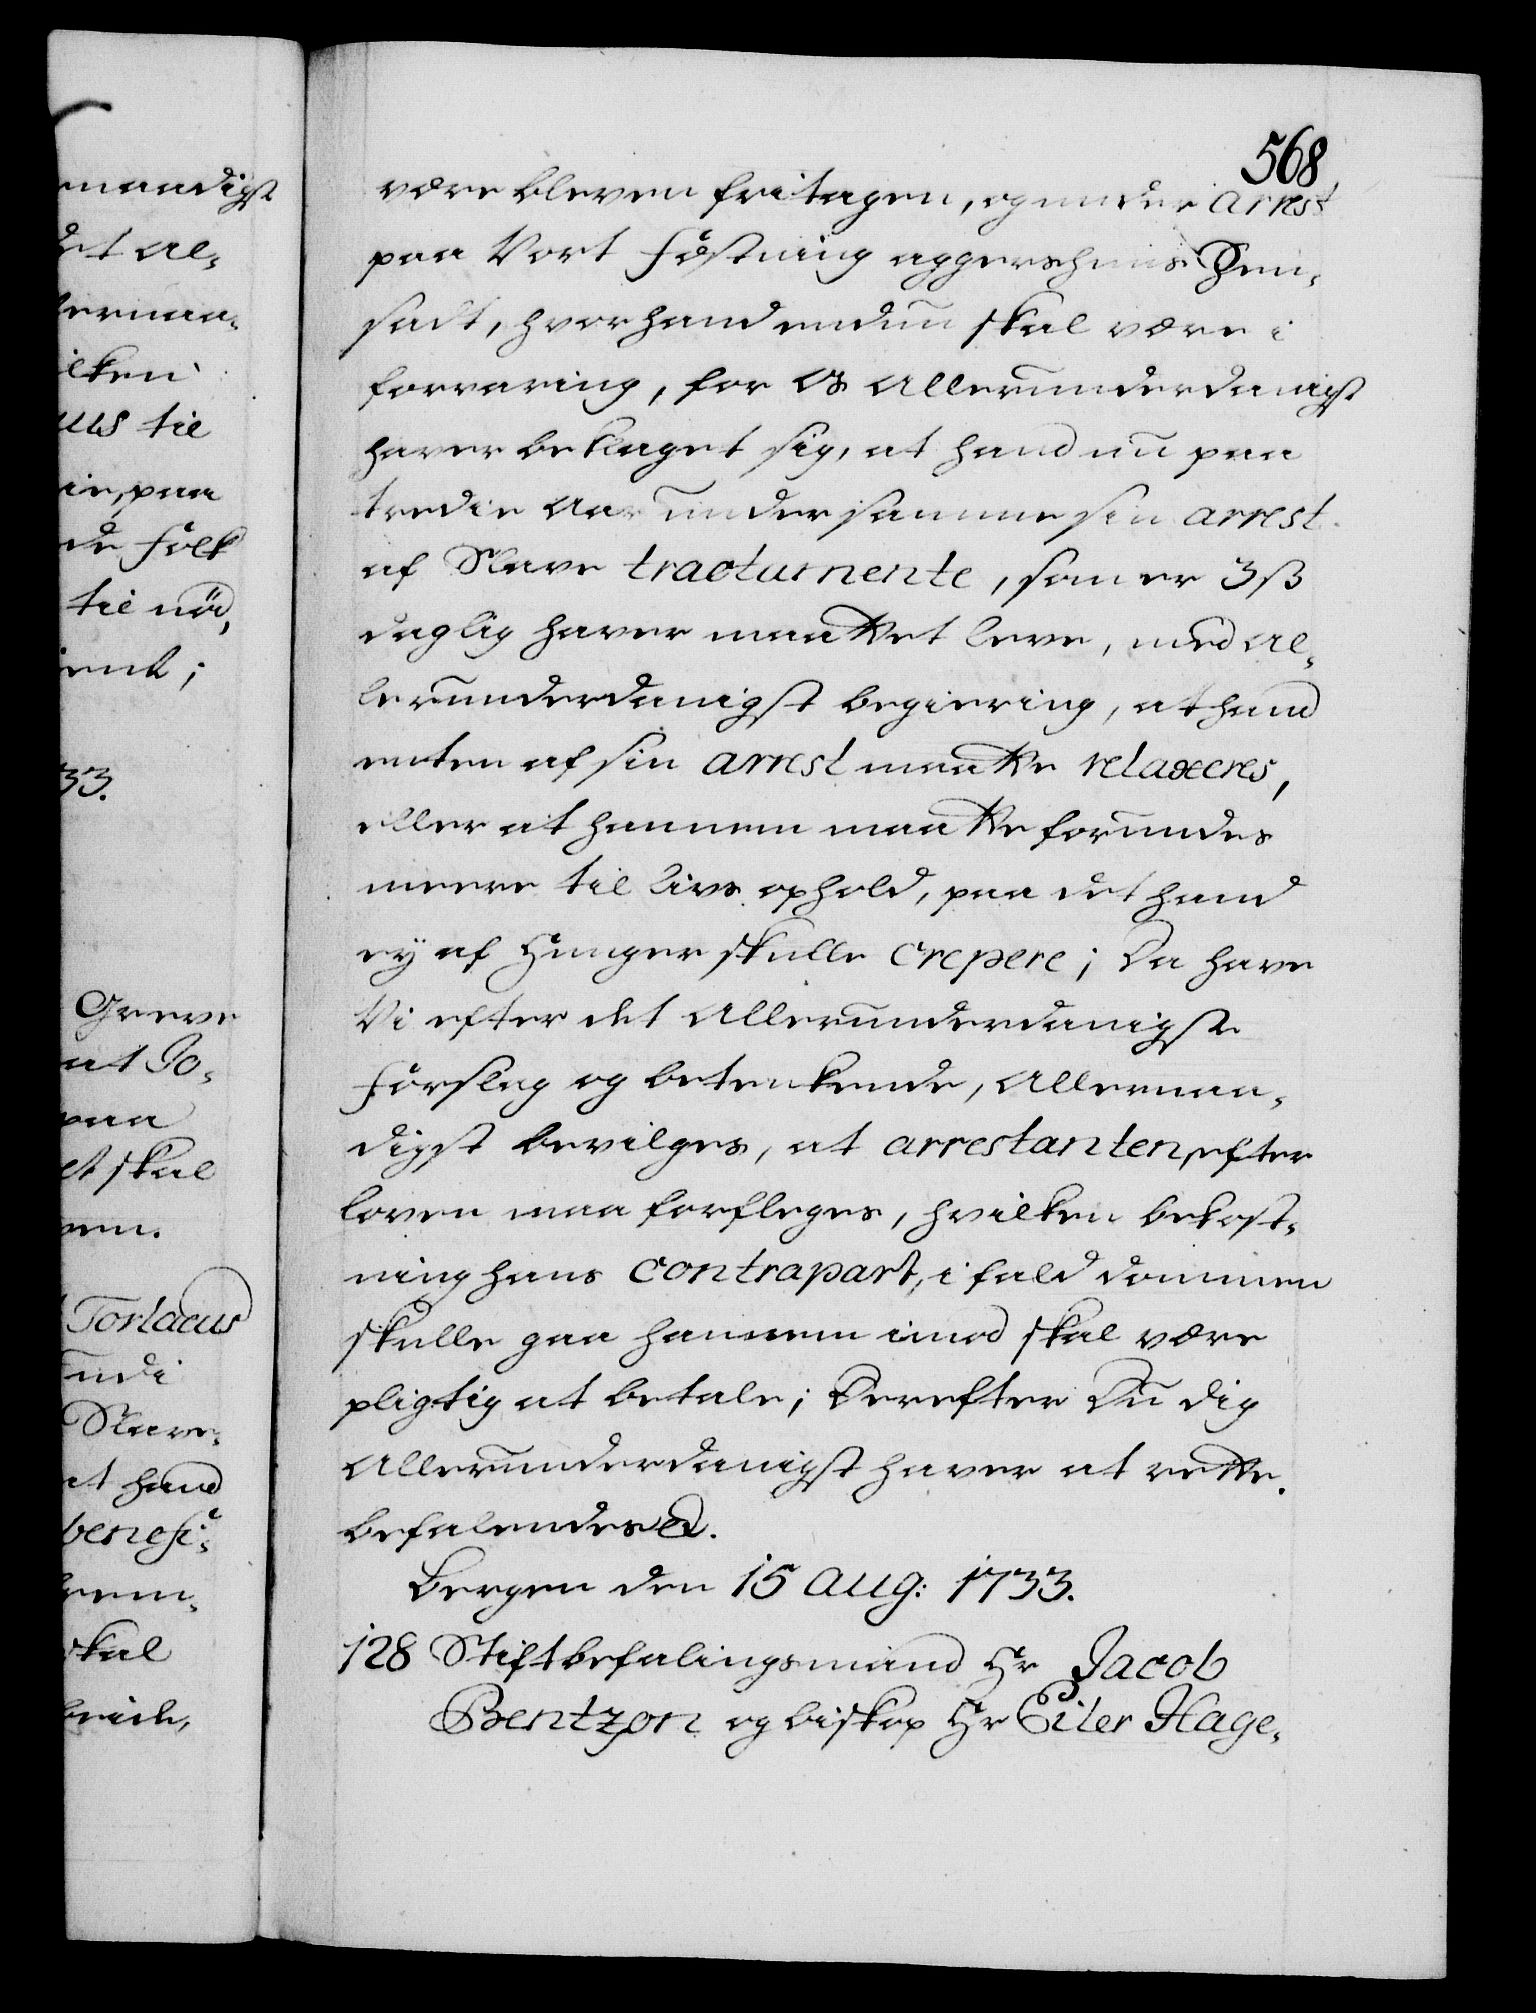 568
være bleven fritagen, og under Arrest
paa Vort Fæstning Aggershuus hen¬
sadt, hvor hand endnu skal være i
forvaring, for Os Allerunderdanigst
haver beklaget sig, at hand nu paa
tredie Aar under samme sin arrest
af Slave tractamente, som er 3 ß
daglig haver maattet leve, med Al¬
lerunderdanigst begiering, at hand
enten af sin arrest maatte relaxeres,
eller at hannem maatte forundes
meere til livs ophold, paa det hand
ey af Hunger skulle crepere; Da have
Vi efter det Allerunderdanigste
Forslag og betenkende, Allernaa¬
digst bevilges, at arrestanten efter
loven maa forpleges, hvilken bekost¬
ning hans contrapart, i fald dommen
skulle gaa hannem imod skal være
pligtig at betale; Derefter Du dig
Allerunderdanigst haver at rette.
befalendes &.
Bergen den 15 Aug: 1733.
128 Stiftbefalingsmand Hr Jacob
Bentzon og biskop Hr Eiler Hage¬
naadigst
det Al¬
lernaa¬
ilken
uus til
ie, paa
de Folk
til nød,
ient;
33.
Greve
at Jo¬
paa
et skal
ven.
Torlacus
Slave¬
at hand
benefi¬
skal